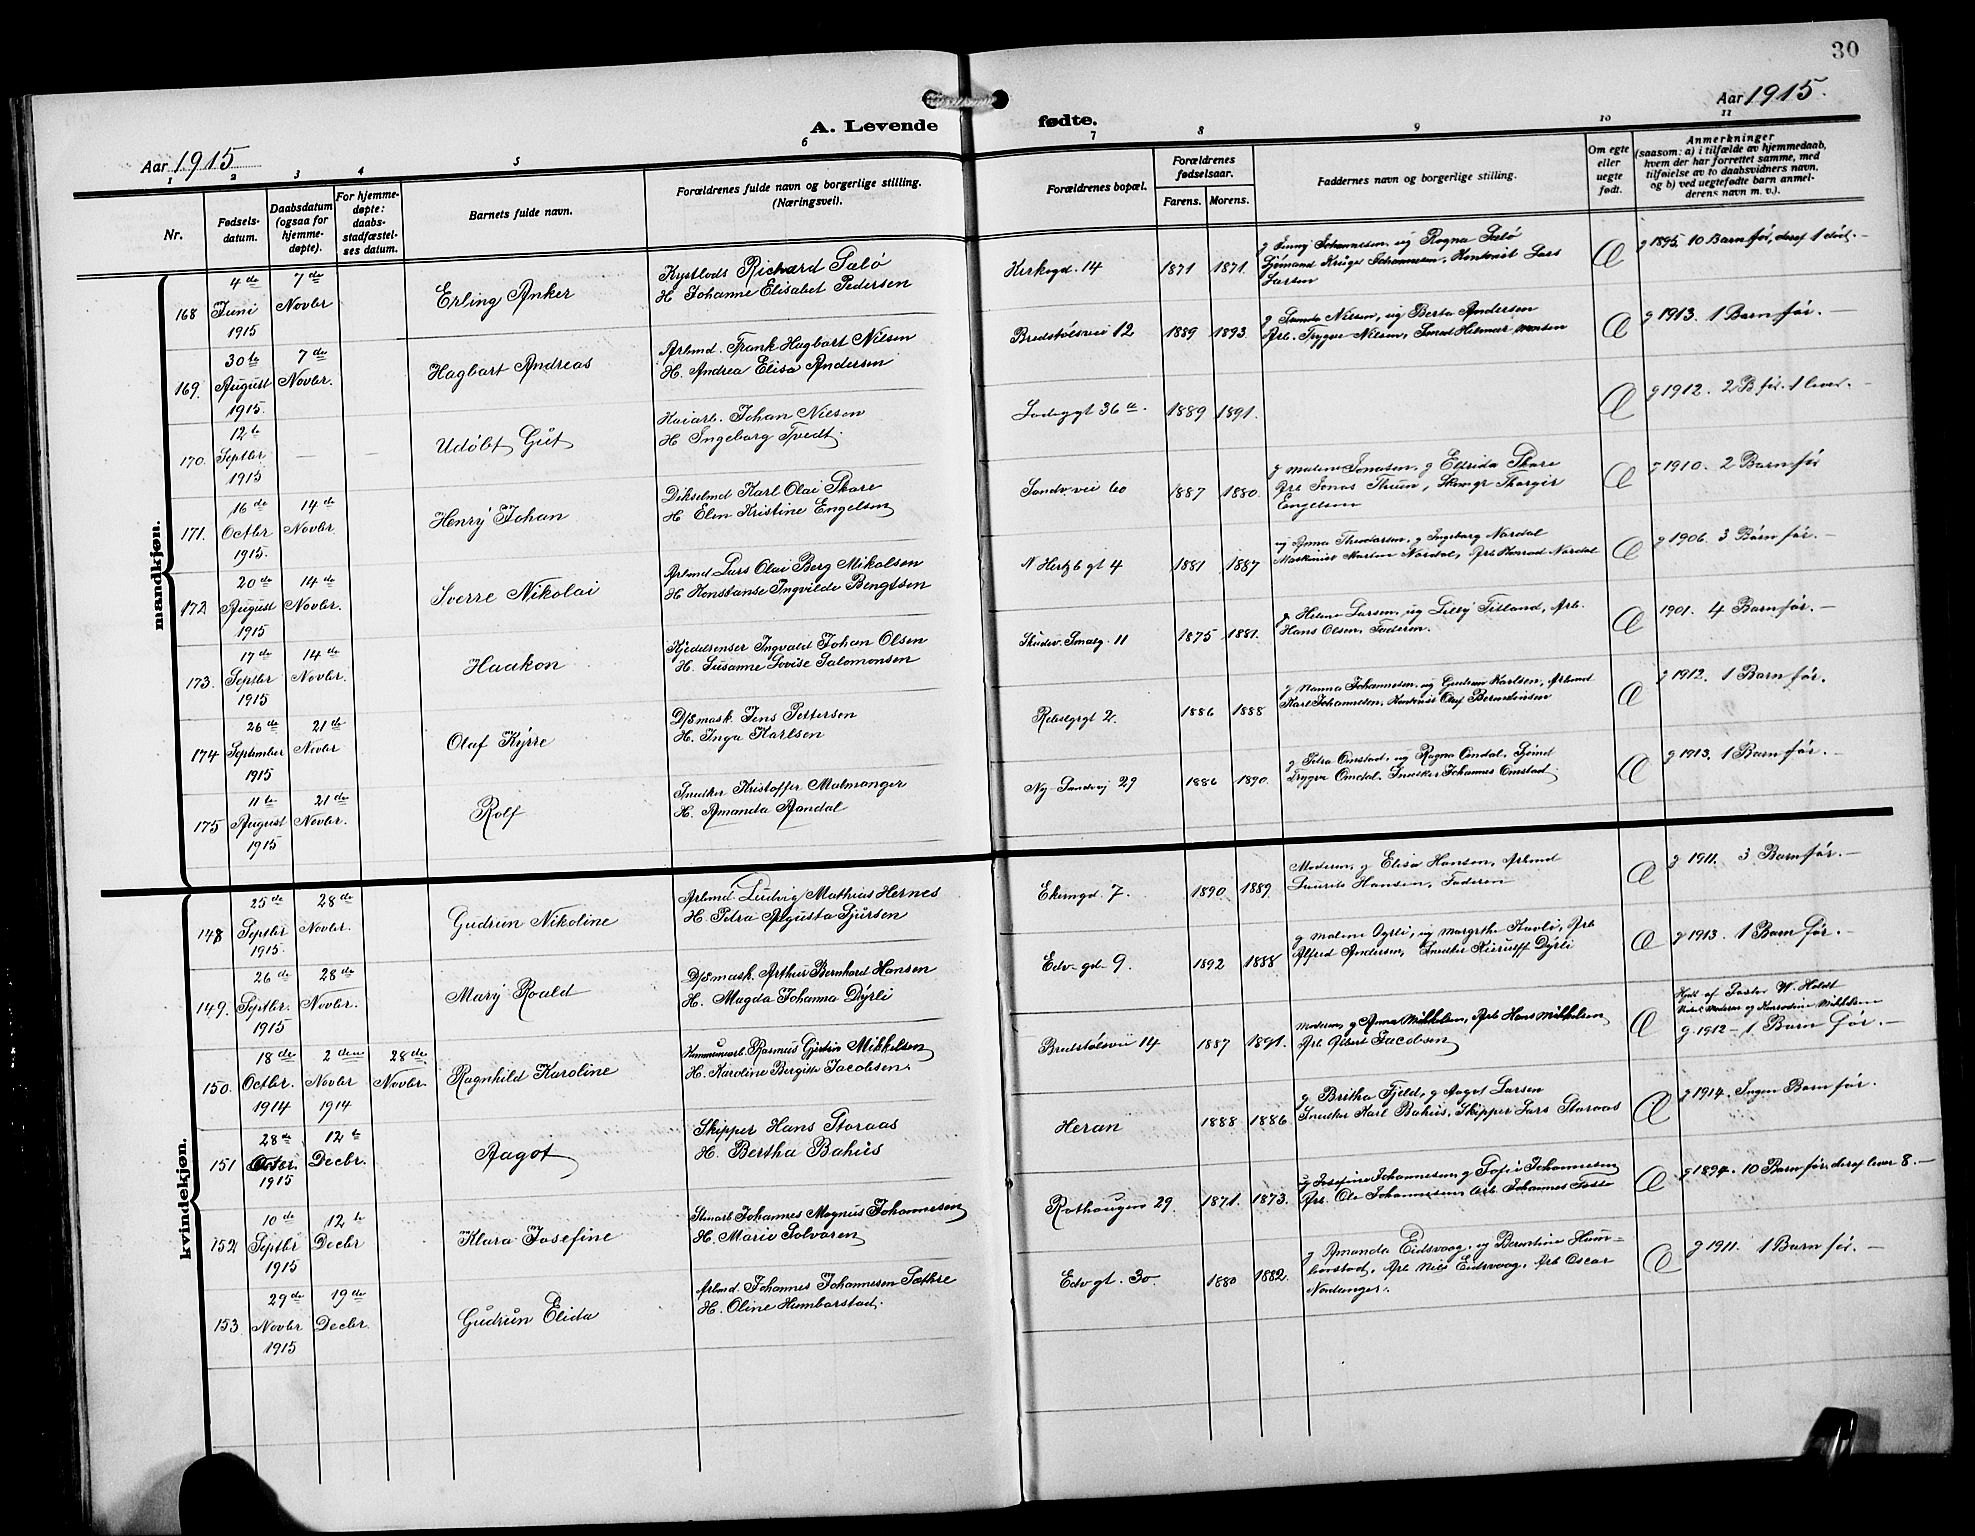 30
Aar 1915.
A. Levende fødte.
Aar 1915
1 2 3 4 5 6 7 8 9 10 11
Nr.
Fødsels-
datum.
Daabsdatum
(ogsaa for
hjemme-
døpte).
For hjemme-
døpte:
daabs-
stadfæstel-
ses datum.
Barnets fulde navn.
Forældrenes fulde navn og borgerlige stilling.
(Næringsvei).
Forældrenes bopæl.
Forældrenes
fødselsaar.
Farens. Morens.
Faddernes navn og borgerlige stilling.
Om egte
eller
uegte
født.
Anmerkninger
(saasom: a) i tilfælde av hjemmedaab,
hvem der har forrettet samme, med
tilføielse av to daabsvidners navn,
og b) ved uegtefødte barn anmel-
derens navn m. v.).
mandkjøn.
168 4de Juni 1915
7de Novbr
Erling Anker
Kystlods Richard Salø
H. Johanne Elisabet Pedersen
Kirkegd. 14
1871 1871.
g Jenny Johannesen, ug Ragna Salø
Sjömand Kruge Johannesen, Kontorist Lars
Larsen
Æ
g 1895 10 Barn før, deraf 1 död. -
169. 30te August 1915.
7de Novbr.
Hagbart Andreas
Arbmd. Frank Hagbart Nilsen
H. Andrea Elisa Andersen
Bredstølsvei 12
1889 1893.
Nilsen, ug Berta Andersen
Arb. Trygve Nilsen, Hilmar
Æ
g 1913. 1 Barn før. -
170. 12te Septbr 1915
Udöbt Gut
Kaiarb. Johan Nilsen
H Ingeborg Tvedt.
Ladeggt 36 a.
1889 1891.
Æ
g 1912. 2 B. før. 1 lever. -
171. 16de Octbr 1915.
14de Novbr
Henry Johan
Dikselmd Karl Olai Skare
H Elen Kristine Engelsen
Sandv. vei 60
1887 1880.
g Malene Jonasen, g Elfrida Skare
Arb Jonas
Engelsen
Æ
g 1910. 2 Barn før
172 20de August 1915
14de Novbr.
Sverre Nikolai
Arbmd Lars Olai Berg Mikalsen
H Konstanse Ingvilde Bengtsen
N Hertzb gt 4
1881 1887
ug Anna Theodorsen, g Ingeborg Nordal
Maskinist Martin Nordal, Arb Konrad Nordal
Æ
g 1906. 3 Børn før. -
173. 17de Septbr 1915
14de Novbr.
Haakon
Kjedelrenser Ingvald Johan Olsen
H. Susanne Lovise Salomonsen
Skudev. Smalg. 11
1875 1881.
g Helene Larsen, ug Lilly Tilland, Arb.
Hans Olsen, Faderen.
Æ
1901. 4 Barn før. -
174 26de September 1915
21de Novbr
Olaf Kyrre
D/S mask. Jens Pettersen
H. Inga Karlsen
Rebslgrgt 2.
1886 1888
g Nanna Johannesen, ug Gudrun Karlsen, Arbmd
Karl Johannesen, Kontorist Olaf Berntsen
Æ
g 1912. 1 Barn før.
175 11te August 1915
21de Novbr.
Rolf
Snedker Kristoffer Malmanger
H. Amanda Aandal
Ny-Sandvej 29
1886 1890.
g Petra Omstad, ug Ragna Omdal, Sjömd
Trygve Omdal. Snedker Johannes Omstad
Æ
g 1913. 1 Barn før. -
kvindekjøn.
148 25de Septbr 1915.
28de Novbr.
Gudrun Nikoline
Arbmd Ludvig Mathias Hernes
H. Petra Augusta Sjursen
Ekerngd. 7.
1890 1889
Moderen, g Elisa Hansen, Arbmd
Laurits Hansen, Faderen
Æ
g 1911. 3 Barn før. -
149. 26de Septbr. 1915
28de Novbr.
Mary Roald
D/S mask. Arthur Bernhard Hansen
H. Magda Johanna Dyrli
Edv-gd- 9.
1892 1888
g Malene Dyrli, ug Margrthe Havli, Arb
Alfred Andersen, Snedker Dyrli
Æ
g 1913. 1 Barn før. -
150. 18de Octbr. 1914
2den Novbr 1914
28de Novbr.
Ragnhild Karoline
Kommunearb. Rasmus Gjertin Mikkelsen
H. Karoline Bergitte Jacobsen.
Bredstølsvei 14
1887 1891.
Moderen, g Anna Mikkelsen, Arb Hans Mikkelsen,
Arb Albert Jacobsen
Æ
Hjdb af Pastor W. Holdt
Moderen og Mikkelsen
g. 1912 - 1 Barn før. -
151 28de Octbr. 1915
12te Decbr.
Aagot
Skipper Hans Storaas
H. Bertha Bahus
Heran
1888 1886
g Britha Fjeld, g Aagot Larsen
Snedker Karl Bahus, Skipper Lars Storaas
Æ
g 1914. Ingen Barn før.
152 10de Septbr 1915
12te Decbr
Klara Josefine
Stenarb Johannes Magnus Johannesen
H. Marie Solvoren
Rothaugen 29.
1871. 1873.
ug Josefine Johannesen, g Sofie Johannesen
Arb. Ole Johannesen, Arb. Johannes
Æ
g 1894. 10 Barn før. deraf lever 8. -
153. 29de Novbr 1915
19de Decbr.
Gudrun Elida
Arbmd Johannes Johannesen Sæthre
H. Oline Humborstad.
Edv gt. 30.
1880 1882.
g Amanda Eidsvaag, ug Berntine Hum-
borstad, Arb Nils Eidsvaag, Arb Oscar
Nordanger.
Æ
g 1911. 1 Barn før. -